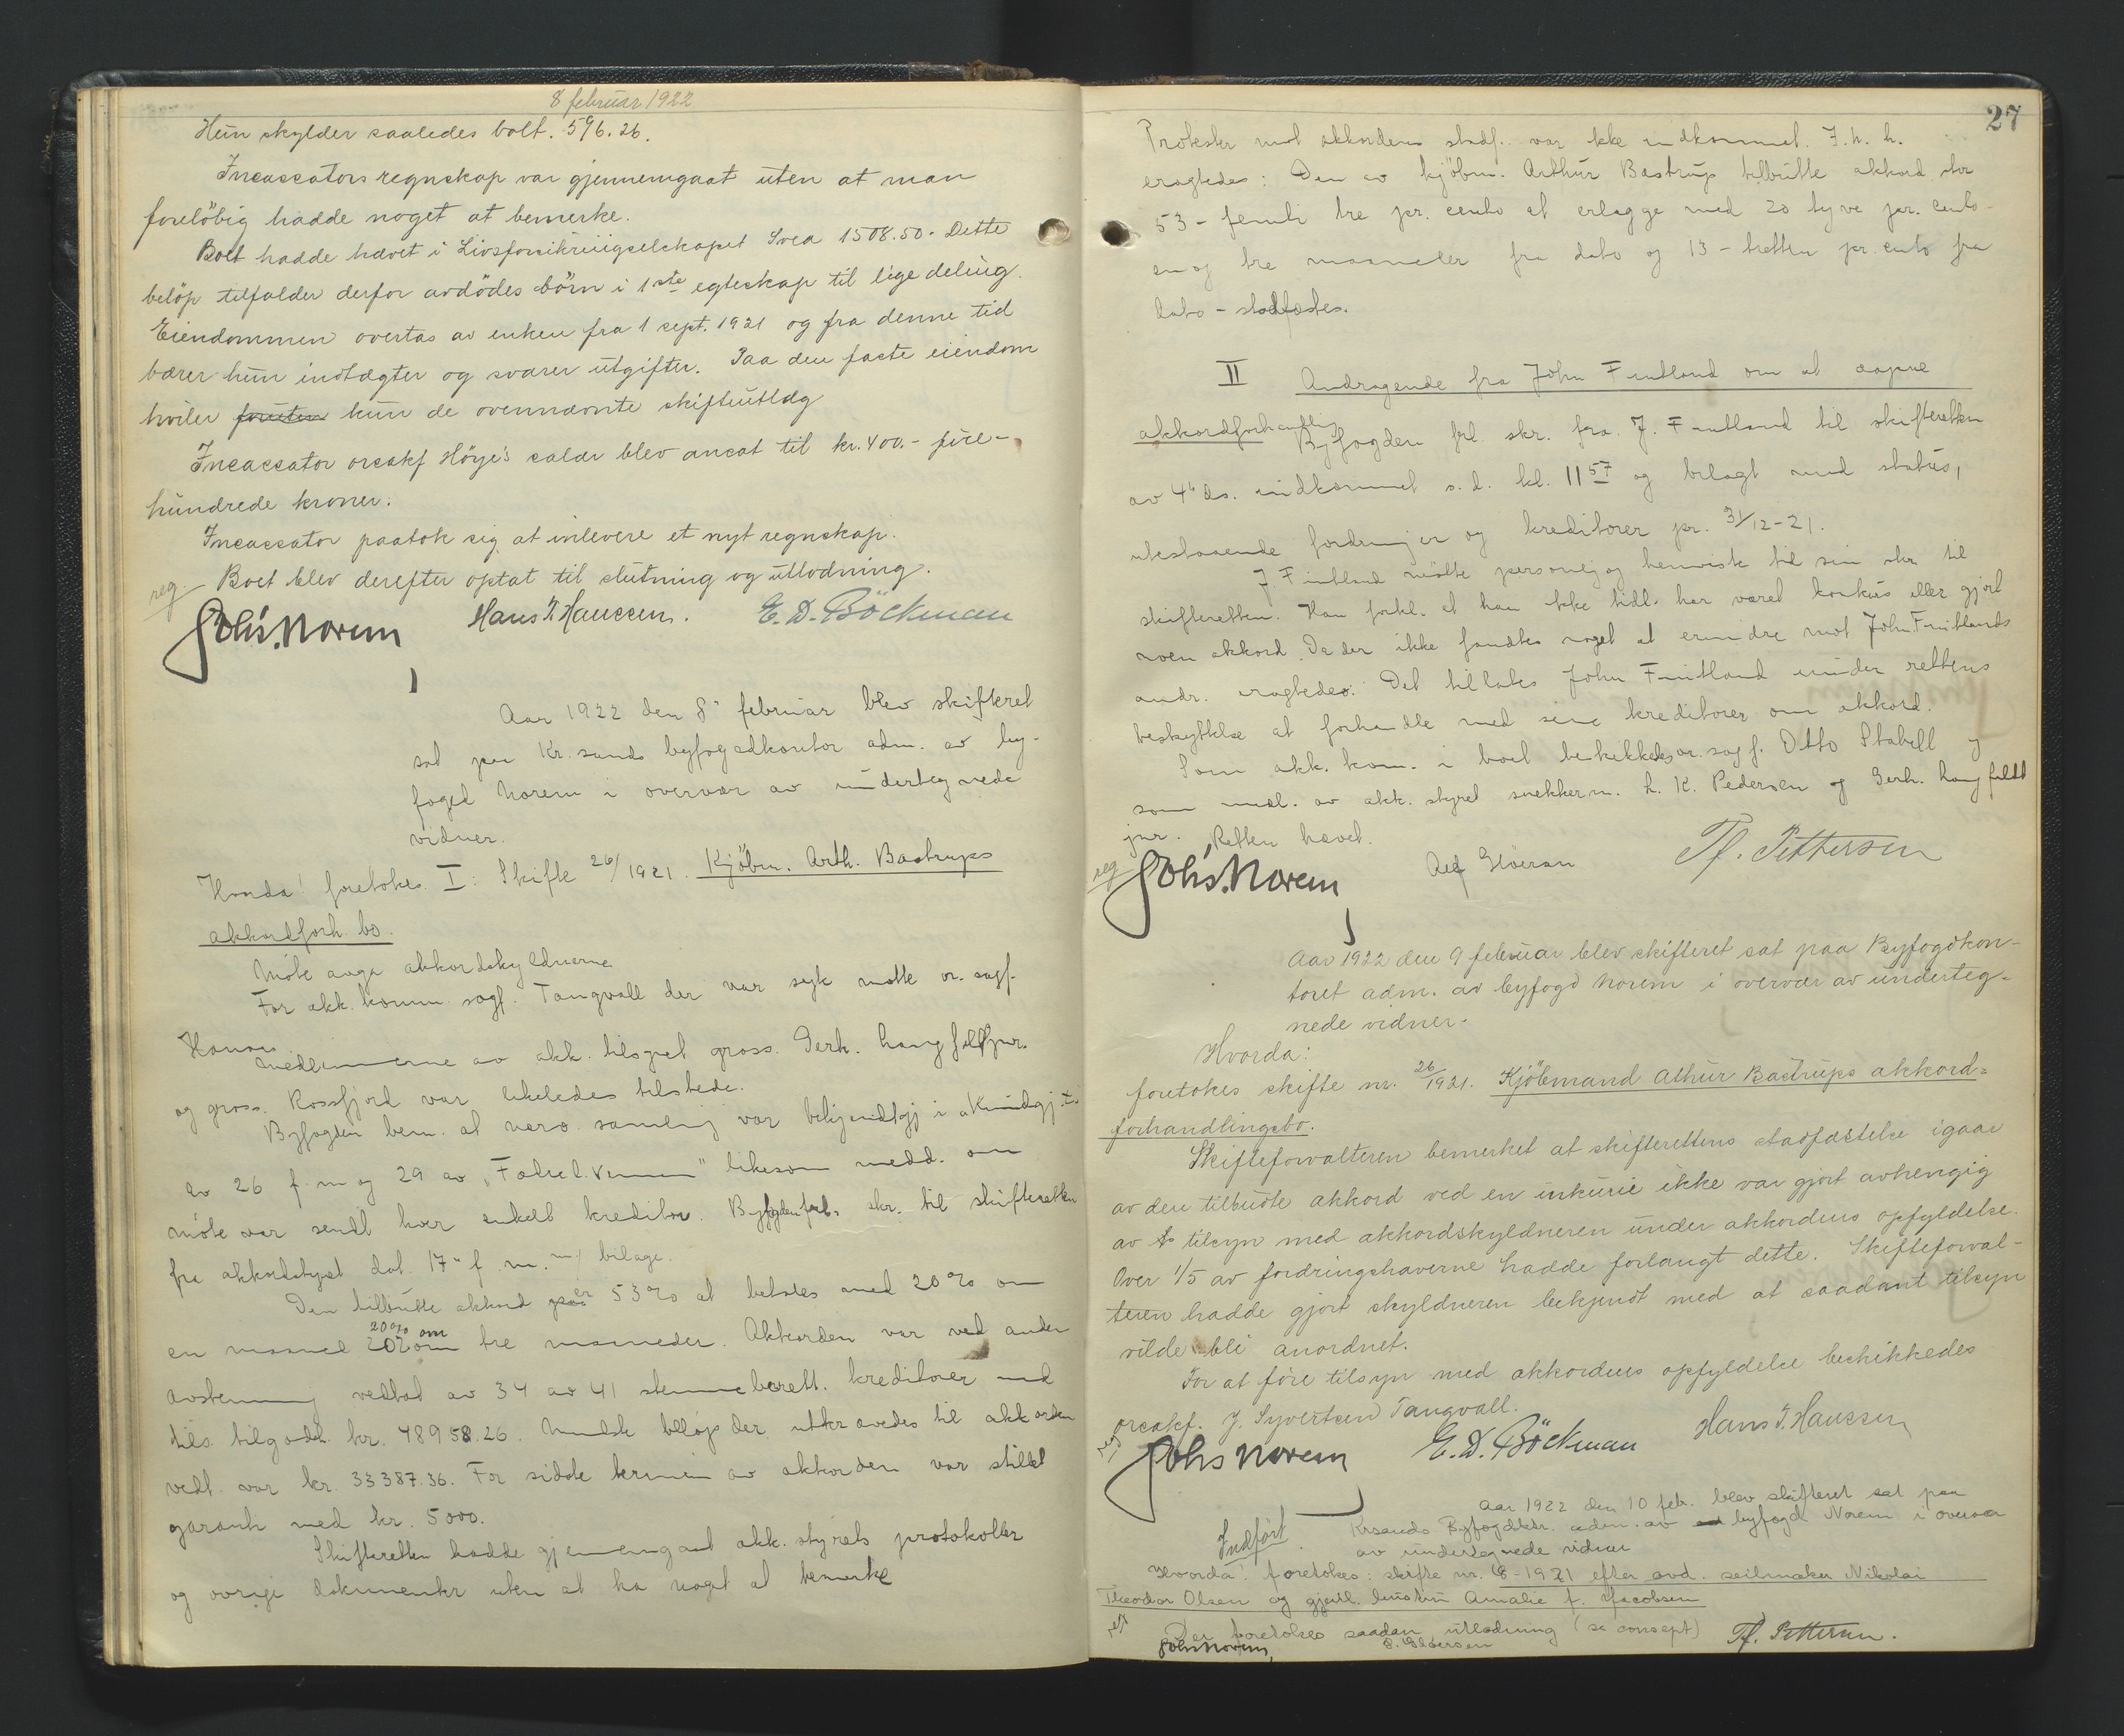 8 februar 1922
Hun skylder saaledes bolt. 596.26.
Incassators regnskap var gjennemgaat uten at man
foreløbig hadde noget at bemerke.
Boet hadde hævet i Livsforsikringselskapet Svea 1508.50. Dette
beløp tilfalder derfor avdödes börn i 1ste egteskap til lige deling.
Eiendommen overtas av enken fra 1 sept. 1921 og fra denne tid
bærer hun indtægter og svarer utgifter. Paa den faste eiendom
hviler foruten kun de ovennævnte skifteutlæg
Incassator orsakf Höye's salær blev ansat til kr. 400.- fire-
hundrede kroner.
Incassator paatok sig at inlevere et nyt regnskap.
reg. Boet blev derefter optat til slutning og utlodning.
Johs. Norem Hans T. Hanssen. E. D. Böckman
Aar 1922 den 8' februar blev skifteret
sat paa Kr.sands byfogadkontor adm. av by-
foged Norem i overvær av undertegnede
vidner.
Hvorda! foretokes I: Skifte 26/1921. Kjöbm. Arth. Bastrups
akkordforh. bo.
Möte avga akkordskyldneren
For akk. komm. sagf. Tangvall der var syk mötte or. sagf.
Medlemmerne av akk. tilsynet gross. Gerh. Langfeldt jnr.
og gross. Rossfjord var likeledes tilstede.
Byfogden bem. at nærv. samling var bekjendtgj i Kundgj.t.
av 26 f. m og 29 av "Fædrel. Vennen" likesom medd. om
möte var sendt hver enkelt kreditor. Byfogden frl. skr. til skifteretten
fra akkordstyret dat. 17" f. m. m/ bilage.
Den tilbutte akkord er 53% at betales med 20% om
en maaned 20% om tre maaneder. Akkorden var ved anden
avstemning vedtat av 34 av 41 stemmeberett. kreditorer med
tils. tilgodeh. kr. 48958.26. Mindste beløp der utkrævedes til akkorden
vedt. var kr. 33387.36. For sidste termin av akkorden var stillet
garanti med kr. 5000.
Skifteretten hadde gjennemgaat akk. styrets protokoller
og övrige dokumenter uten at ha noget at bemerke
27
Protester mot akkordens stadf. var ikke indkommet. F. h. h.
eragtedes: Den av kjöbm. Arthur Bastrup tilbutte akkord stor
53 - femti tre pr. cento at erlægge med 20 tyve pr. cento
en og tre maaneder fra dato og 13 - tretten pr. cento fra
dato - stadfæstes.
II Andragende fra John Fintland om at aapne
akkordforhandling
Byfogden frl. skr. fra J. Fintland til skifteretten
av 4" ds. indkommet s. d. kl. 11 57 og bilagt med status,
utestaaende fordringer og kreditorer pr. 31/12-21.
J Fintland mötte personlig og henviste til sin skr til
skifteretten. Han forkl. at han ikke tidl. har været konkurs eller gjort
noen akkord. Da der ikke fandtes noget at erindre mot John Fintlands
andr. eragtedes: Det tillates John Fintland under rettens
beskyttelse at forhandle med sine kreditorer om akkord.
Som akk. kom. i boet beskikkedes or. sagf. Otto Stabell og
som medl. av akk. styret snekkerm. L. K. Pedersen og Gerh. Langfeldt
jnr. Retten hævet.
reg Johs. Norem Th. Pettersen
Aar 1922 den 9 februar blev skifteret sat paa Byfogdkon-
toret adm. av byfogd Norem i overvær av underteg-
nede vidner.
Hvorda:
foretokes skifte nr. 26/1921. Kjöbmand Athur Bastrups akkord-
forhandlingsbo.
Skifteforvalteren bemerket at skifterettens stadfæstelse igaar
av den tilbudte akkord ved en inkurie ikke var gjort avhengig
av tilsyn med akkordskyldneren under akkordens opfyldelse.
Over 1/5 av fordringshaverne hadde forlangt dette. Skifteforval-
teren hadde gjort skyldneren bekjendt med at saadant tilsyn
vilde bli anordnet.
For at före tilsyn med akkordens opfyldelse beskikkedes
orsakf. J. Syvertsen Tangvall.
reg Johs Norem E. D. Böckman Hans T. Hanssen
Aar 1922 den 10 feb. blev skifteret sat paa
Indfört. Krsands Byfogdktr. adm. av byfogd Norem i overvær
av undertegnede vidner
Hvorda! foretokes: skifte nr. 8-1921 efter avd. seilmaker Nikolai
Theodor Olsen og gjenl. hustru Amalie f. Jacobsen
reg Der foretokes saadan utlodning (se consept)
Johs Norem, Th. Pettersen.